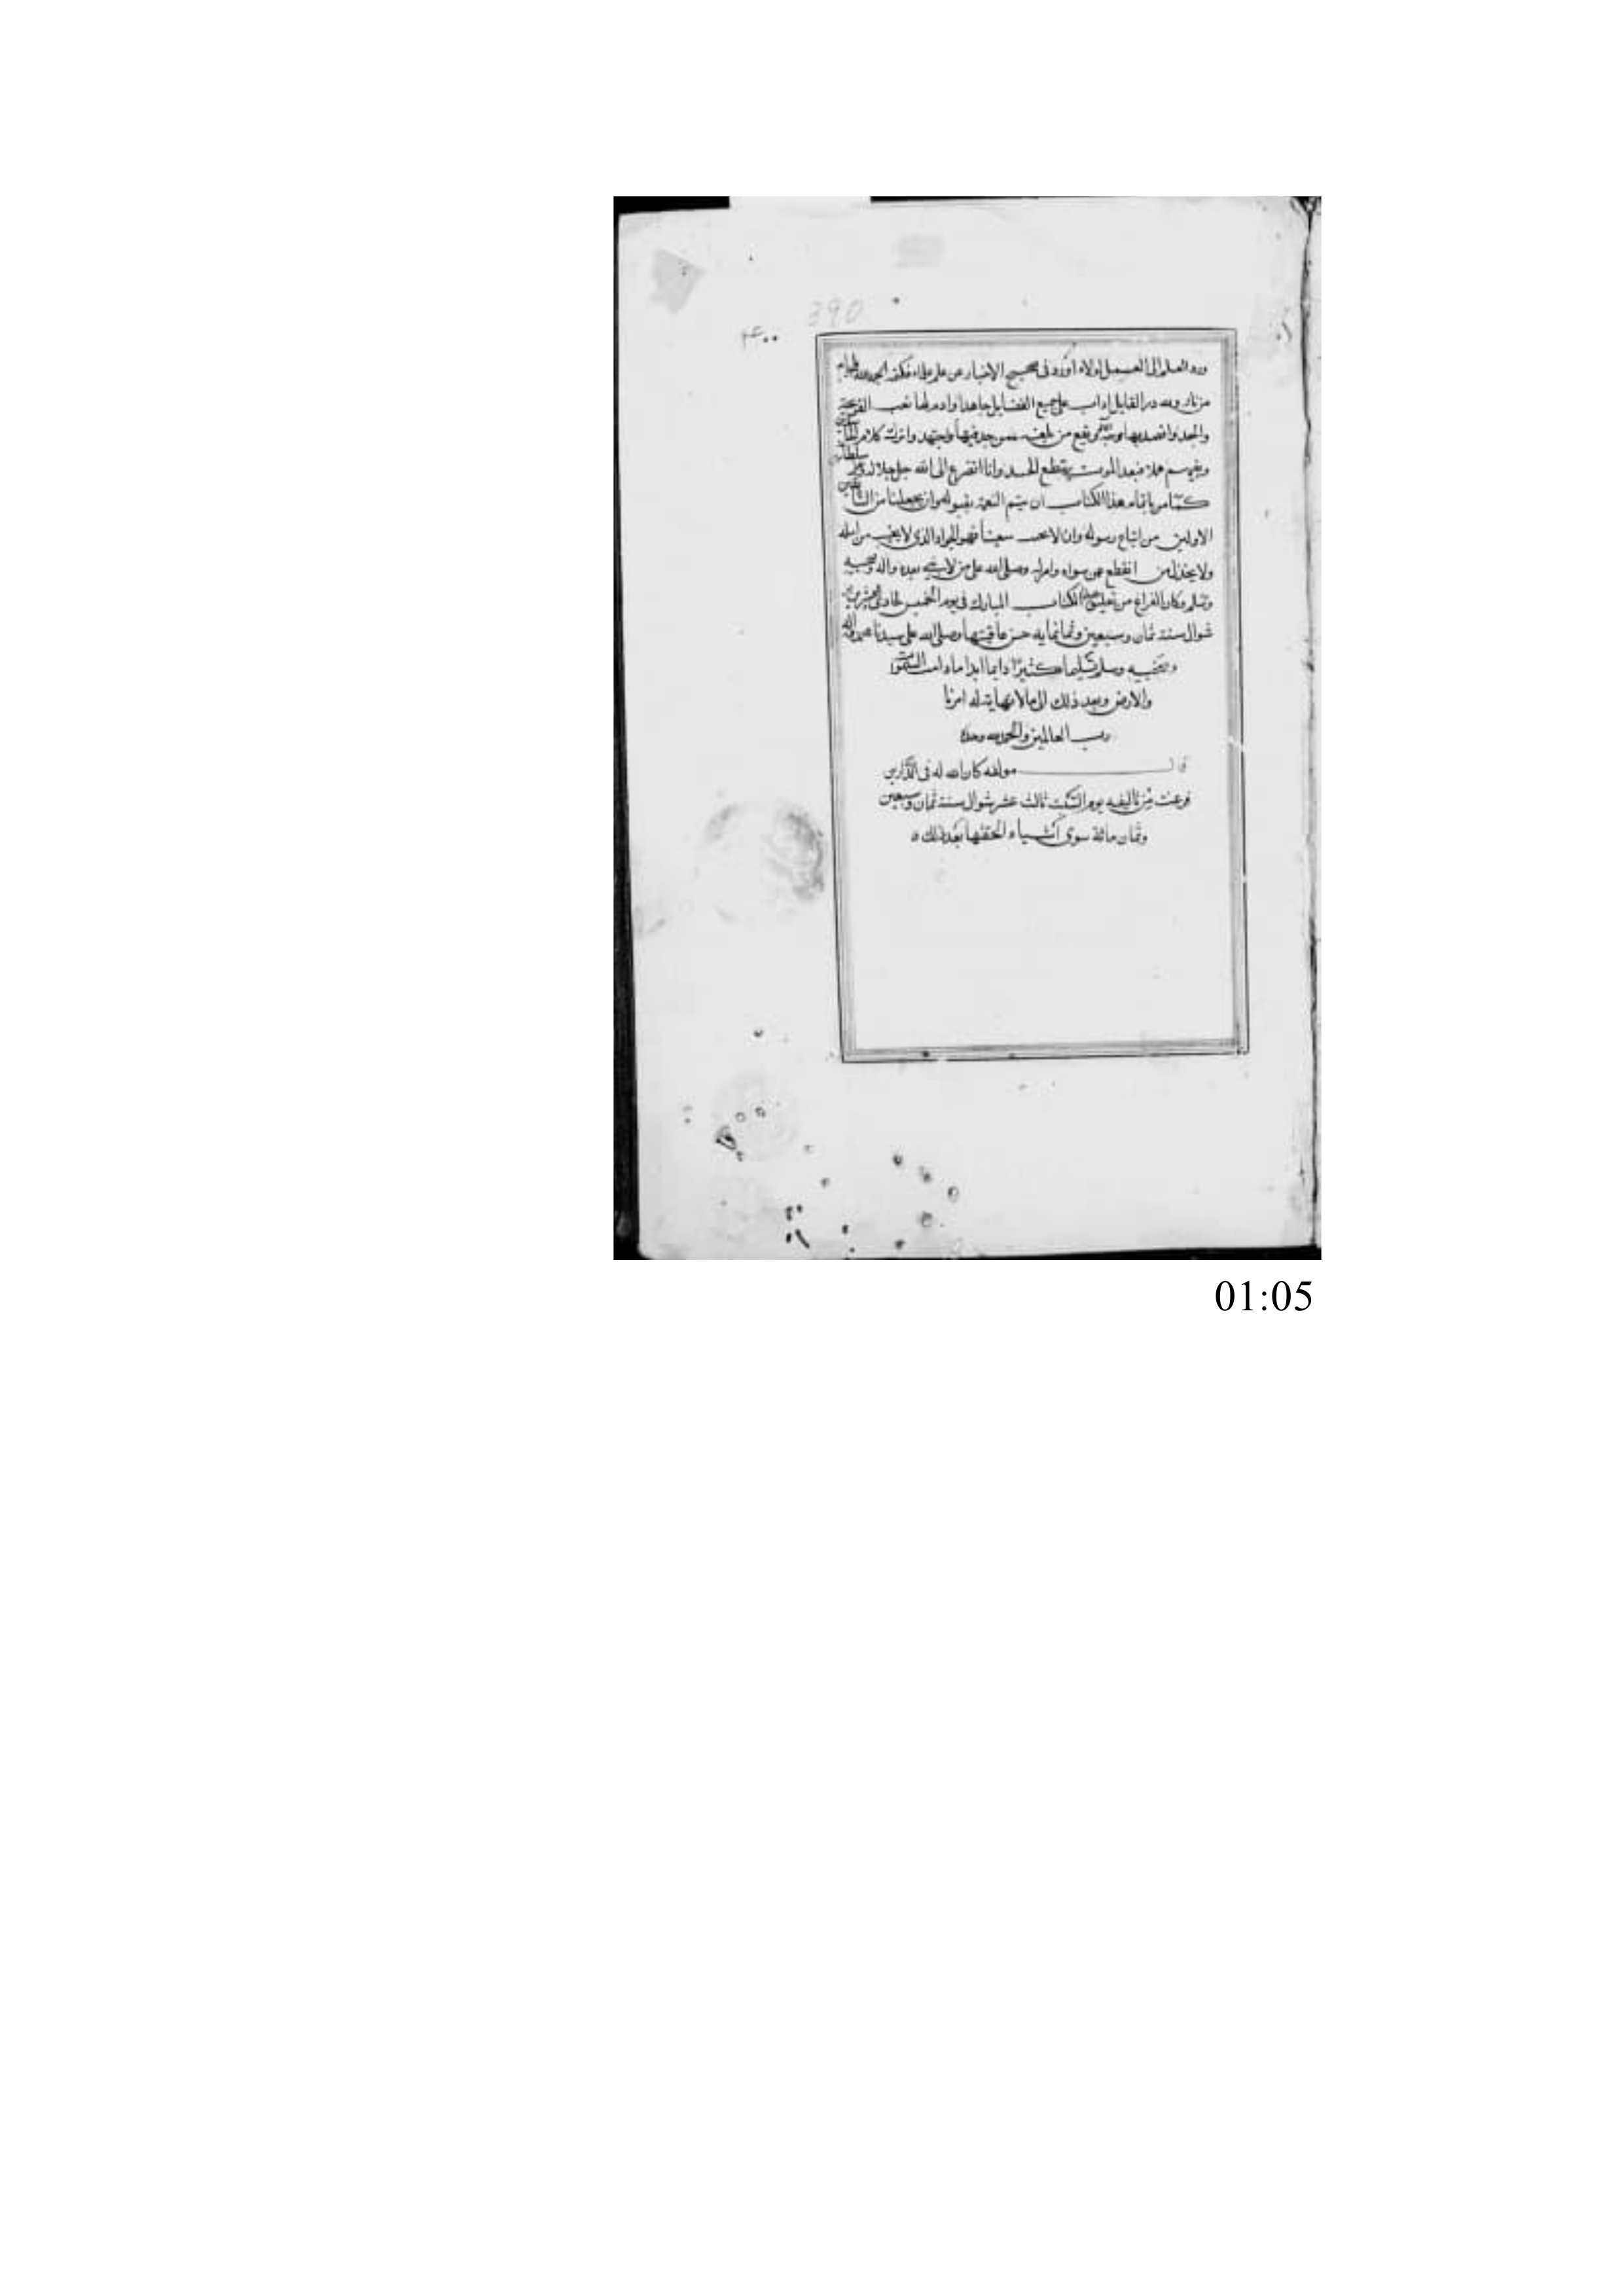 390
٣٠٠
ورد العلم الى العمل اولاه اورد فى صحيح الاخبار عن علم علماء فكتمه الجمه الله بلجام
من نار ولله در القايل اداب على جمع الفضايل جاهدا وادم لها تعب القريحة
والجد واقصد بها وجه ونفع من بلغته ممن جد فيها واجتهد واترك كلام
وبغيهم هملا فبعد الموت ينقطع الحسد وانا اتضرع الى الله جل جلاله
كما من باتمام هذا الكتاب ان يتم النعمة بقبوله وان يجعلنا من
الاولين من اتباع رسوله وان لا يخيب سعينا فهو الجواد الذى لا يخيب من امله
ولا يخذل من انقطع عمن سواه وامله وصلى الله على من لا نبى بعده واله وصحبه
وسلم وكان الفراغ من تعليق هذا الكتاب المبارك فى يوم الخميس الحادى
شوال سنة ثمان وسبعين وثمانمايه حسن عاقبتها وصلى الله على سيدنا محمد واله
وصحبه وسلم تسليما كثيرا دايما ابدا ما دامت السموات
والارض وبعد ذلك الى ما لا نهاية له امرنا
رب العالمين والحمد لله وحده
قال مولفه كان الله له فى الدارين
فرغت من تاليفه يوم السبت ثالث عشر شوال سنة ثمان وسبعين
وثمان مائة سوى اشياء الحقتها بعد ذلك ه
01:05